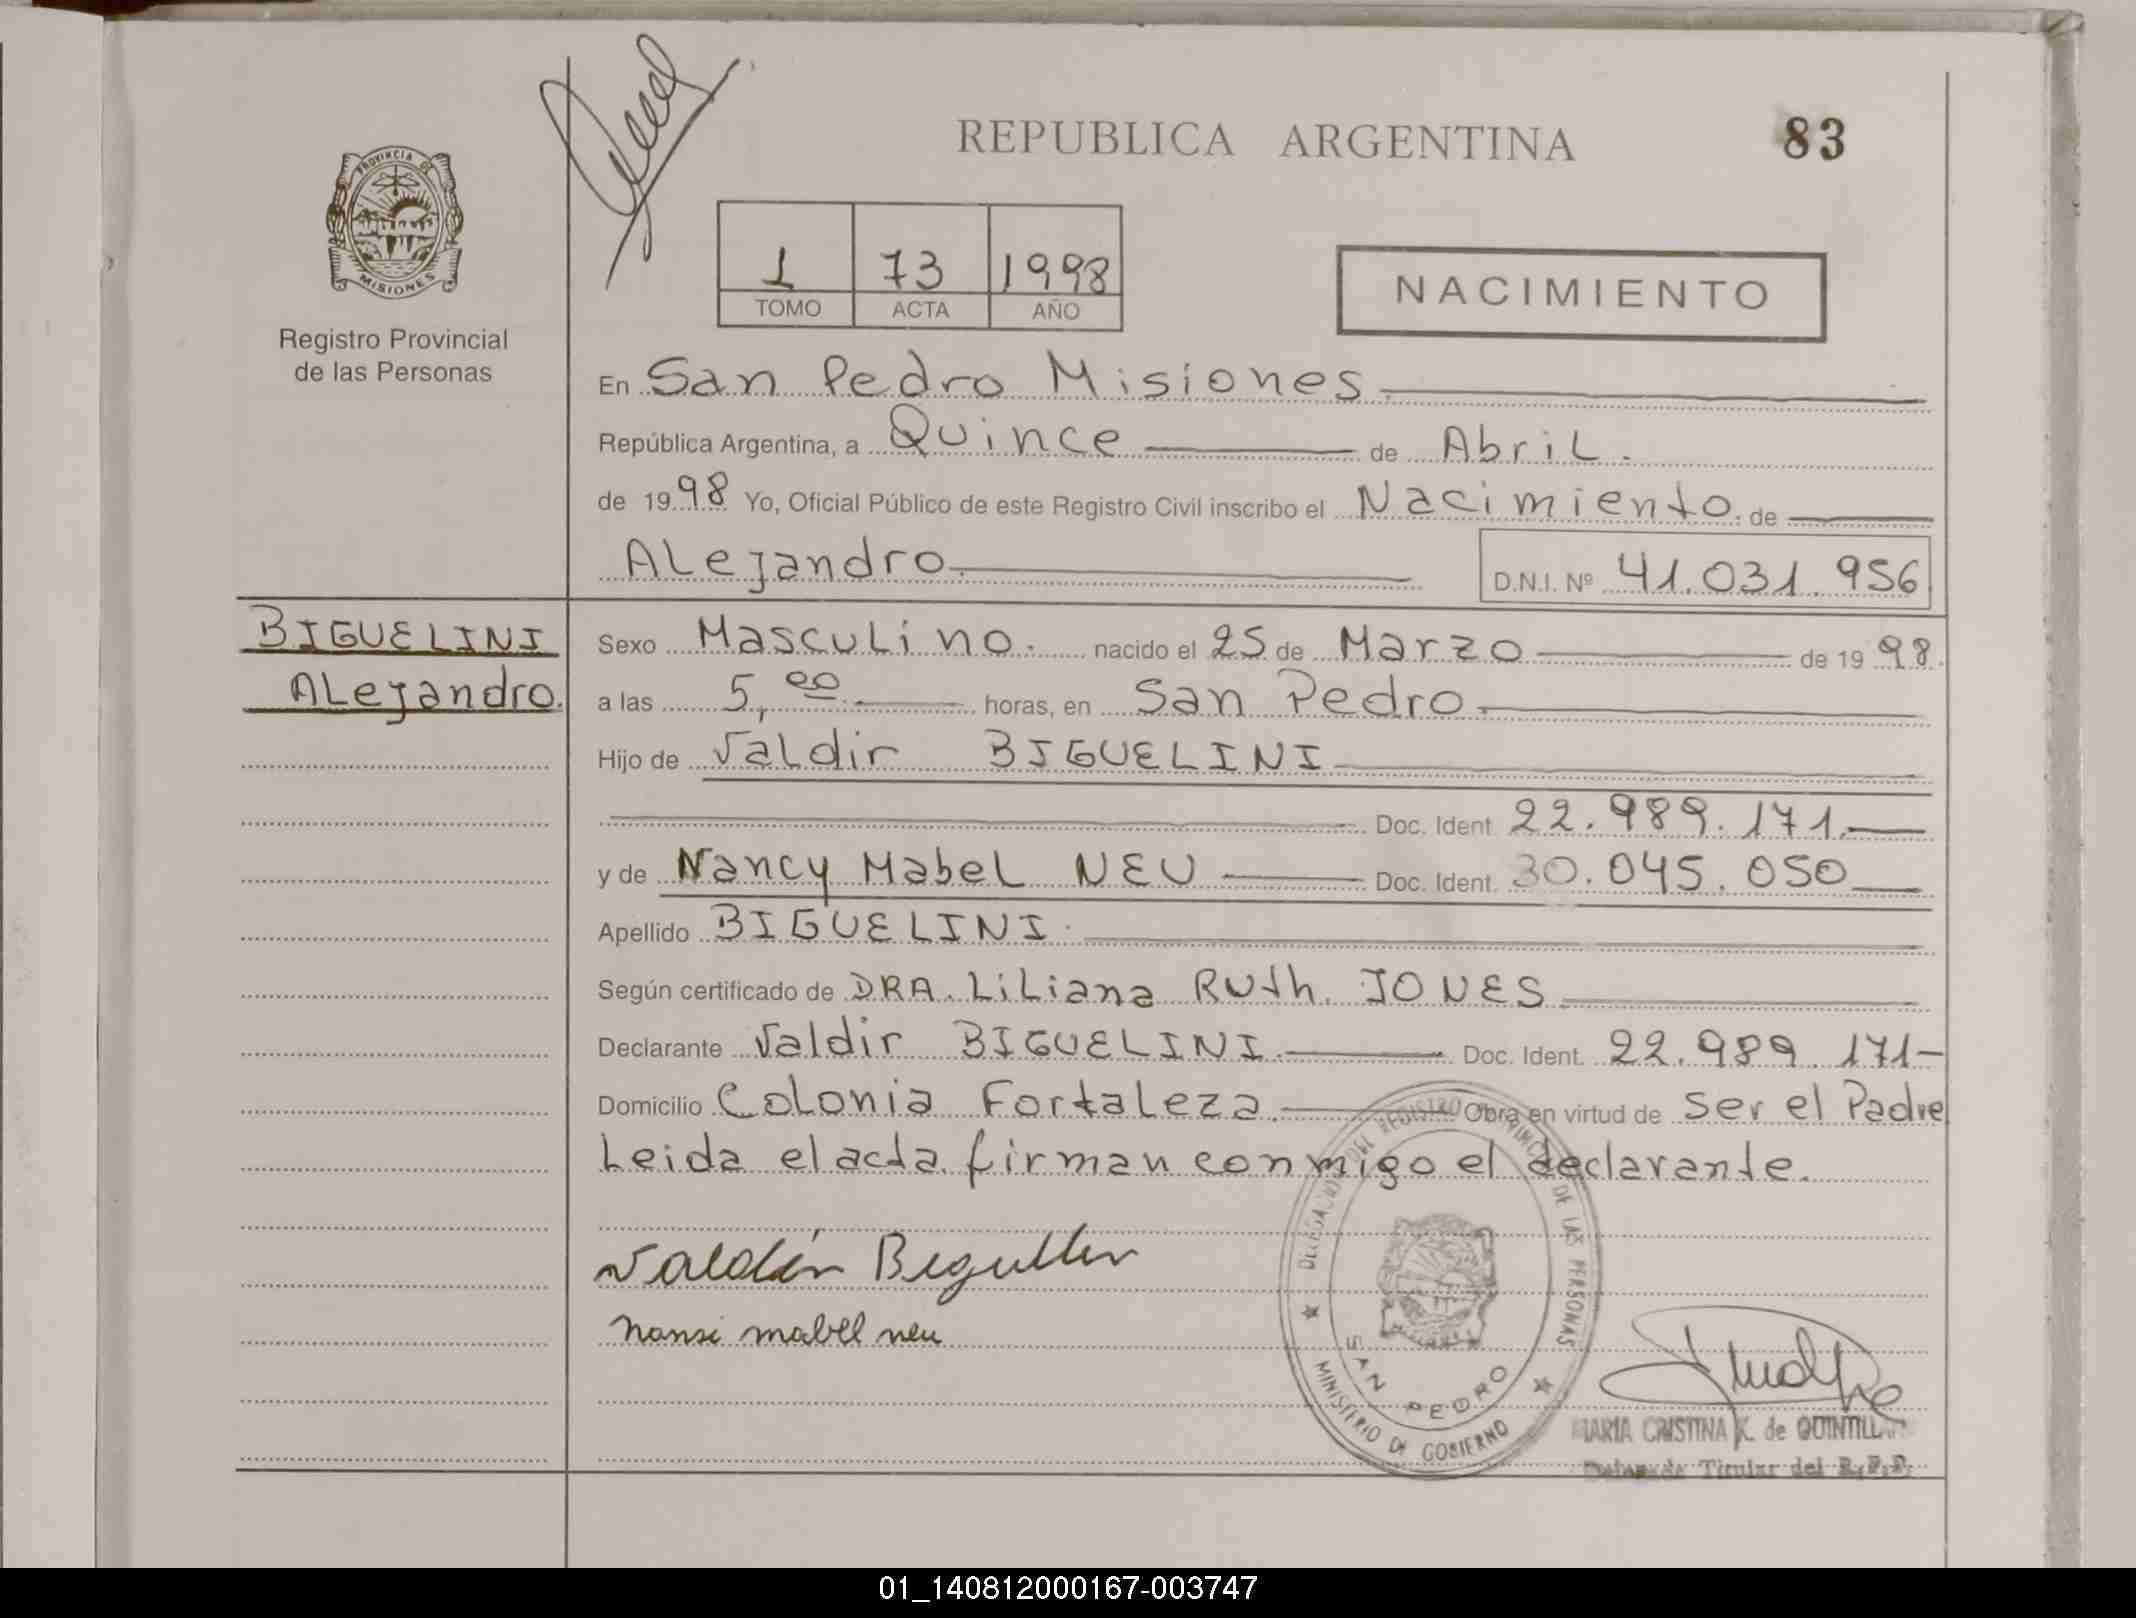 REPUBLICA ARGENTINA
83
PROVINCIA DE
MISIONES
Registro Provincial
de las Personas
1 73 1998
TOMO ACTA AÑO
NACIMIENTO
En San Pedro Misiones.
República Argentina, a Quince de Abril.
de 1998 Yo, Oficial Público de este Registro Civil inscribo el Nacimiento. de
ALejandro. D.N.I. Nº 41.031.956
BIGUELINI
ALejandro.
Sexo Masculino. nacido el 25 de Marzo de 1998.
a las 5,00 horas, en San Pedro.
Hijo de Valdir BIGUELINI
Doc. Ident. 22.989.171.
y de Nancy Mabel NEU Doc. Ident. 30.045.050
Apellido BIGUELINI.
Según certificado de DRA. Liliana Ruth. JONES
Declarante Valdir BIGUELINI. Doc. Ident. 22.989.171-
Domicilio Colonia Fortaleza. Obra en virtud de ser el Padre
Leida el acta firman conmigo el declarante.
nansi mabel neu
DELEGACION DEL REGISTRO PROVINCIAL DE LAS PERSONAS
SAN PEDRO
MINISTERIO DE GOBIERNO
MARIA CRISTINA K. de QUINTILLAN
Titular del R.P.P.
01_140812000167-003747